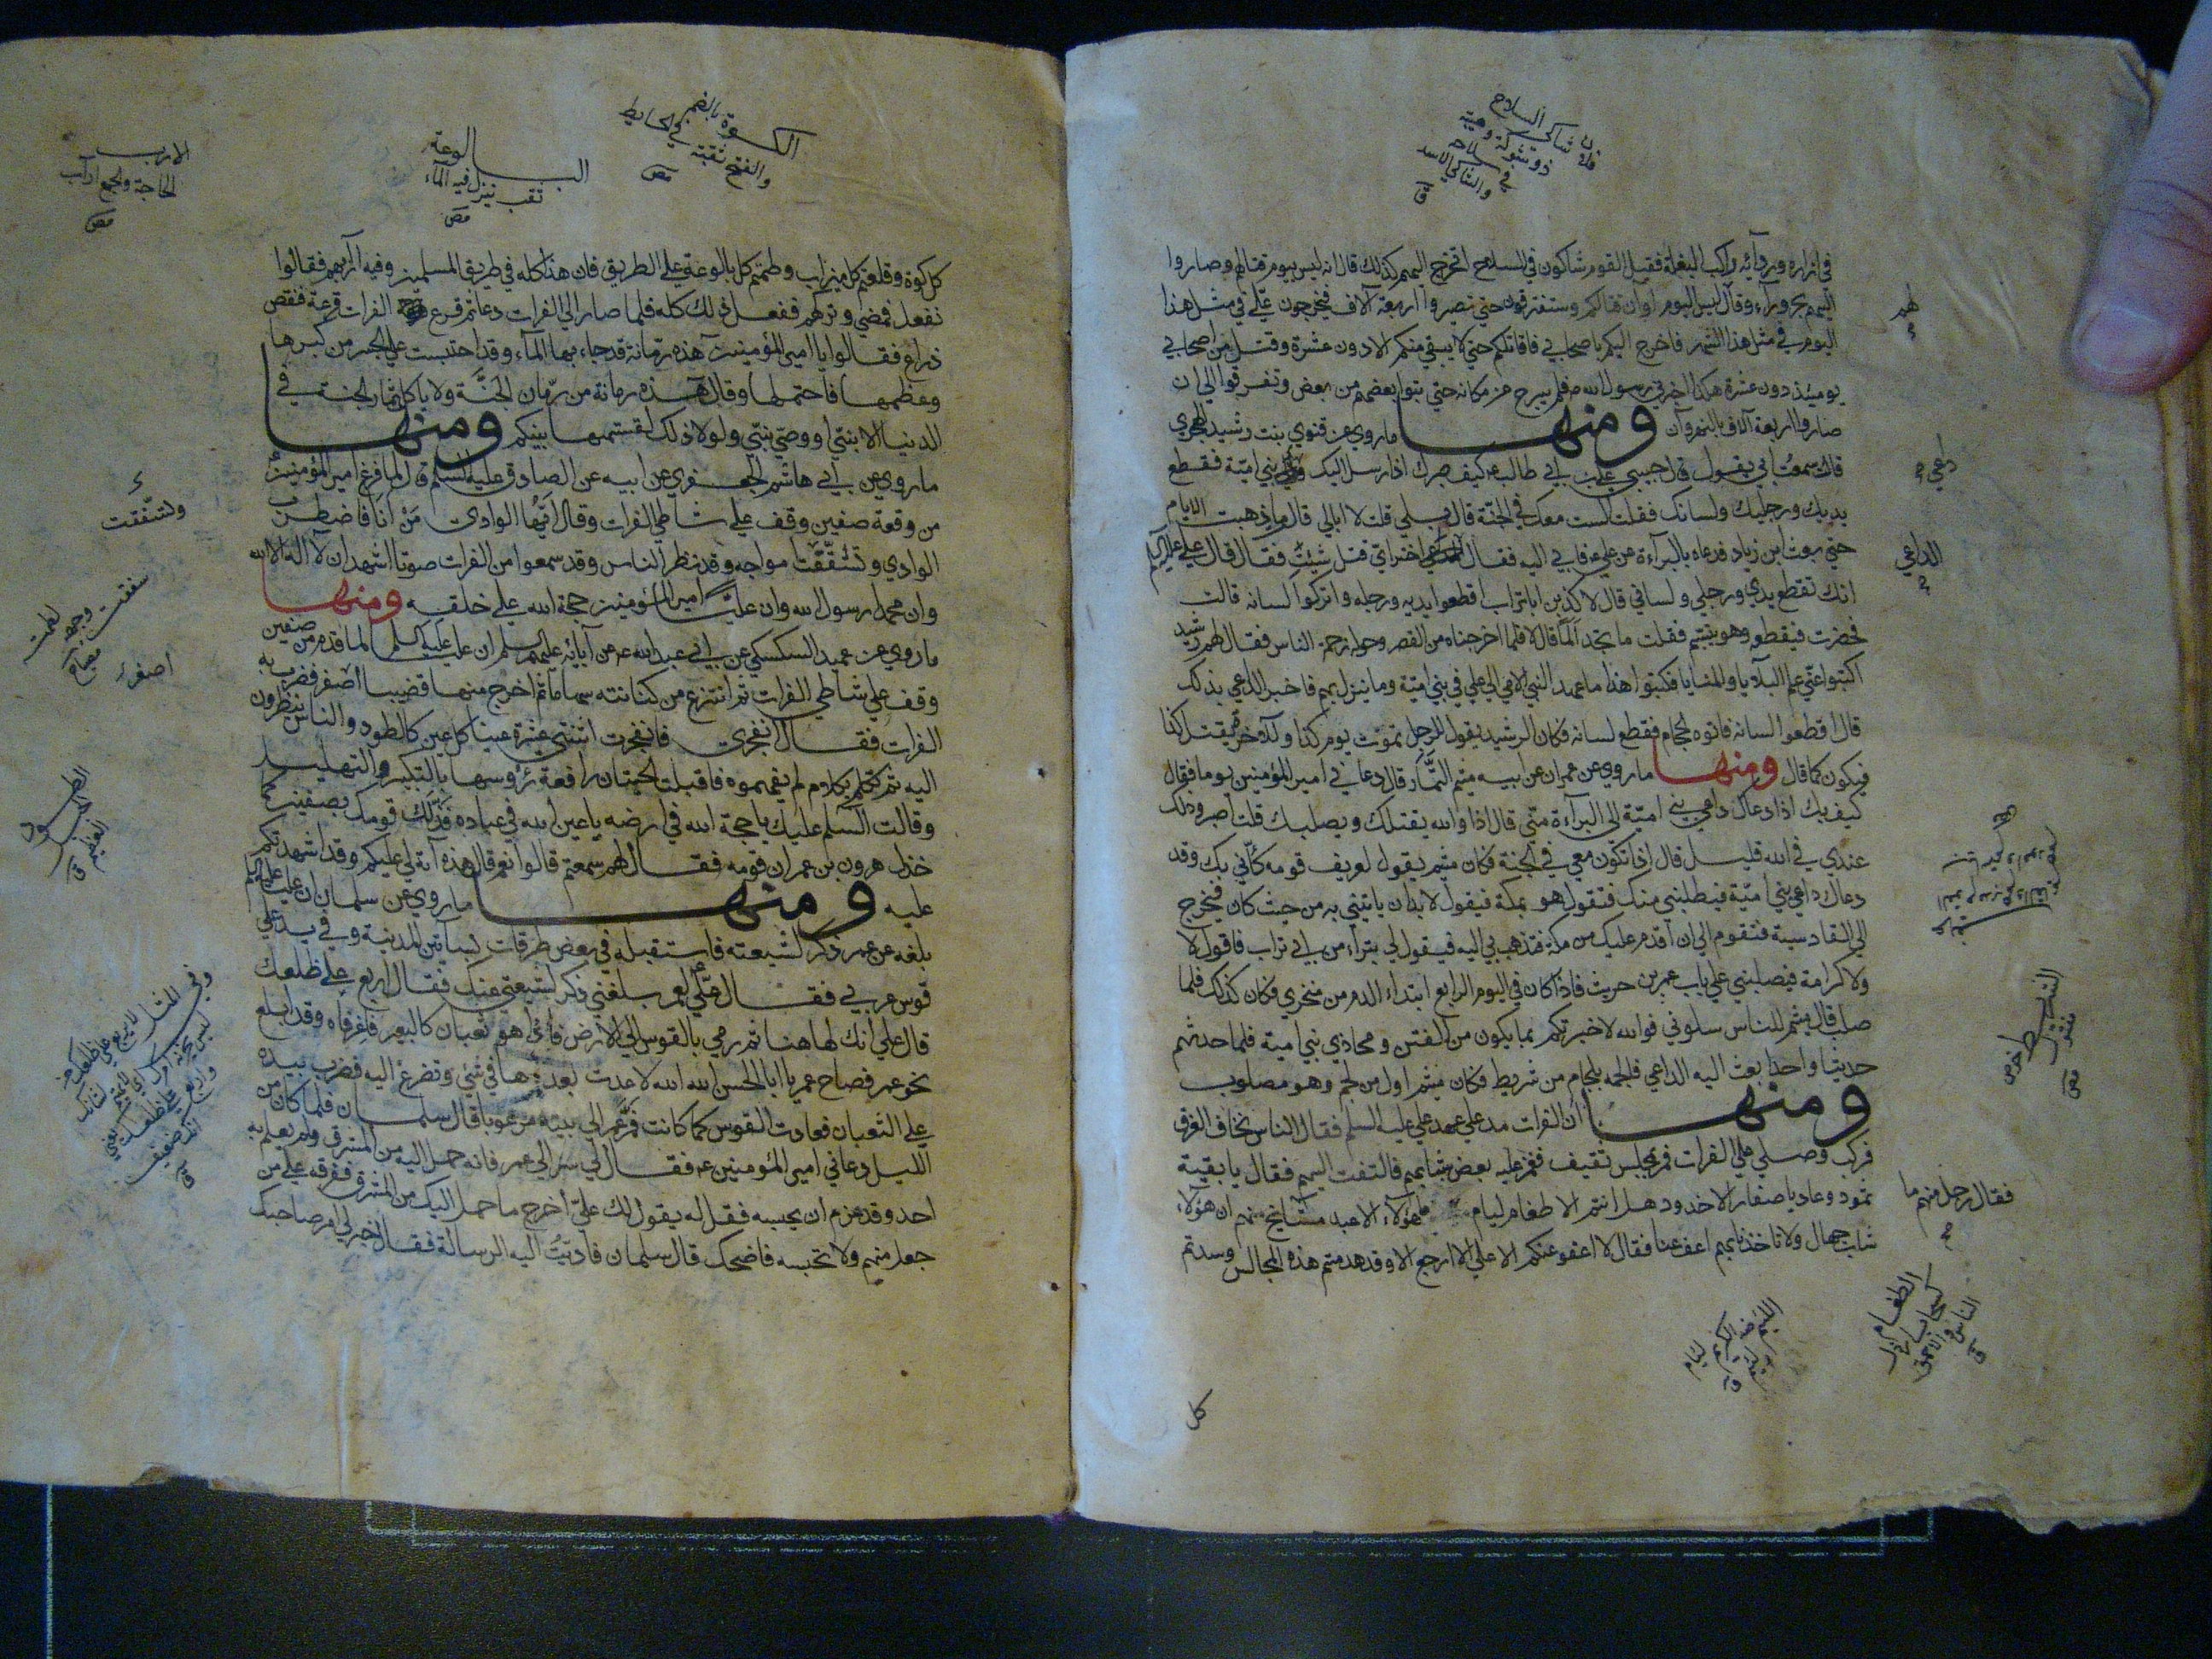 في ازاره وردائه راكب البغلة فقيل القوم شاكون في السلاح اتخرج اليهم كذلك قال انه ليس بيوم قتالهم وصاروا
اليهم بحروراء وقال ليس اليوم اوان قتالكم وستفترقون حتي تصيروا اربعة آلاف فيخرجون علي في مثل هذا
اليوم في مثل هذا الشهر فاخرج اليكم باصحابي فاقاتلكم حتي لا يبقي منكم الا دون عشرة وقتل من اصحابي
يومئذ دون عشرة هكذا اخبرني رسول الله ص فلم يبرح من مكانه حتي تبرا بعضهم من بعض وتفرقوا الي ان
صاروا اربعة آلاف بالنهروان ومنها ما روي عن قنوي بنت رشيد الهجري
قالت سمعت ابي يقول قال حبيبي علي بن ابي طالب ع كيف صبرك اذا ارسل اليك دعي بني امية فقطع
يديك ورجليك ولسانك فقلت الست معك في الجنة قال بلي قلت لا ابالي قال فما ذهبت الايام
حتي بعث ابن زياد فدعاه بالبراءة من علي ع فابي اليه فقال الداعي اختر اي قتل شئت فقال قال علي عليه السلم
انك تقطع يدي ورجلي ولساني قال لاكذبن ابا تراب اقطعوا يديه ورجله واتركوا لسانه قالت
فحضرت فيقطع وهو يبتسم فقلت ما تجد الما قال لا فلما اخرجناه من القصر وحوله زحمة الناس فقال لهم رشيد
اكتبوا عني علم البلايا والمنايا فكتبوا هذا ما عهد النبي الامي الي علي في بني امية وما ينزل بهم فاخبر الداعي بذلك
قال اقطعوا لسانه فاتوه بحجام فقطع لسانه فكان الرشيد يقول للرجل تموت يوم كذا ولآخر يقتل كذا
فيكون كما قال ومنها ما روي عن عمران عن ابيه ميثم التمار قال دعاني امير المؤمنين يوما فقال
كيف بك اذا دعاك داعي بني امية الي البراءة مني قال اذا والله يقتلك ويصلبك قلت اصبر وذلك
عندي في الله قليل قال اذا تكون معي في الجنة فكان ميثم يقول لعريف قومه كاني بك وقد
دعاك داعي بني امية فيطلبني منك فتقول هو بمكة فيقول لا بد ان ياتيني به من حيث كان فيخرج
الي القادسية فتقوم الي ان اقدم عليك من مكة فتذهب بي اليه فيقول لي تبرأ من ابي تراب فاقول لا
ولا كرامة فيصلبني علي باب عمر بن حريث فاذا كان في اليوم الرابع ابتداء الدم من منخري فكان كذلك فلما
صلب قال ميثم للناس سلوني فوالله لاخبرتكم بما يكون من الفتن ومخازي بني امية فلما حدثهم
حديثا واحدا بعث اليه الداعي فالجمه بلجام من شريط فكان ميثم اول من لجم وهو مصلوب
ومنها ان الفرات مد علي عهد علي عليه السلم فقال الناس نخاف الغرق
فركب وصلي علي الفرات فمر بمجلس ثقيف فغمز عليه بعض شبابهم فالتفت اليهم فقال يا بقية
ثمود وعاد يا صغار الاخدود هل انتم الا طغام ليام هؤلاء الاعبد مشايخ منهم ان هؤلاء
شباب جهال ولا تاخذنا بهم اعف عنا فقال لا اعفو عنكم الا علي الا ارجع الا وقد هدمتم هذه المجالس وسدتم
فلان شاكي السلاح
ذو شوكة وهيبة
في سلاحه
والشاكي الاسد
ق
لهم
دعي
الداعي
فقال رجل منهم ما
الطغام
كسحاب
الناس والاحمق
ق
كل
كل كوة وقلعتم كل ميزاب وطممتم كل بالوعة علي الطريق فان هذا كله في طريق المسلمين وفيه آرابهم فقالوا
نفعل فمضي وتركهم ففعل ذلك كله فلما صار الي الفرات دعا ثم قرع الفرات قرعة فنقص
ذراع فقالوا يا امير المؤمنين هذه رمانة قد جاء بها الماء وقد احتبست علي الجسر من كبرها
وعظمها فاحتملها وقال هذه رمانة من رمان الجنة ولا ياكل ثمار الجنة في
الدنيا الا نبي او وصي نبي ولولا ذلك لقسمتها بينكم ومنها
ما روي عن ابي هاشم الجعفري عن ابيه عن الصادق عليه السلم قال لما فرغ امير المؤمنين
من وقعة صفين وقف علي شاطي الفرات وقال ايها الوادي من انا فاضطرب
الوادي وتشققت امواجه وقد نظر الناس وقد سمعوا من الفرات صوتا اشهد ان لا اله الا الله
وان محمدا رسول الله وان عليا امير المؤمنين حجة الله علي خلقه ومنها
ما روي عن عبيد السكسكي عن ابي عبد الله ع عن آبائه عليهم السلم ان عليا عليه السلم لما قدم من صفين
وقف علي شاطي الفرات ثم انتزع من كنانته سهاما ثم اخرج منها قضيبا اصفر فضرب به
الفرات فقال انفجري فانفجرت اثنتي عشرة عينا كل عين كالطود والناس ينظرون
اليه ثم تكلم بكلام لم يفهموه فاقبلت الحيتان رافعة رؤوسها بالتكبير والتهليل
وقالت السلم عليك يا حجة الله في ارضه يا عين الله في عباده خذلك قومك بصفين كما
خذل هرون بن عمران قومه فقال لهم سمعتم قالوا نعم قال هذه آية لي عليكم وقد اشهدتكم
عليه ومنها ما روي عن سلمان ان عليا عليه السلم
بلغه عن عمر ذكر لشيعته فاستقبله في بعض طرقات بساتين المدينة وفي يد علي
قوس عربي فقال علي يا عمر بلغني ذكر لشيعتي عنك فقال اربع علي ظلعك
قال علي انك لهاهنا ثم رمي بالقوس الي الارض فاذا هو ثعبان كالبعير فاغرفاه وقد ابلع
نحو عمر فصاح عمر يا ابا الحسن الله الله لا عدت بعدها في شئ وتضرع اليه فضرب بيده
علي الثعبان فعادت القوس كما كانت فمر عمر الي بيته مرعوبا قال سلمان فلما كان من
الليل دعاني امير المؤمنين ع فقال لي سر الي عمر فانه حمل اليه من المشرق ولم يعلم به
احد وقد عزم ان يحبسه فقل له يقول لك علي اخرج ما حمل اليك من المشرق ففرقه علي من
جعل منهم ولا تحبسه فافضحك قال سلمان فاديت اليه الرسالة فقال اخبرني امر صاحبك
الكوة بالضم
والفتح ثقبة في الحايط
مص
البالوعة
ثقب ينزل فيه الماء
مص
الارب
الحاجة والجمع آراب
مص
وتشققت
اصفر
وفي المثل لا يربع علي ظلعك من
واربع علي ظلعك يعني
انك ضعيف
ق